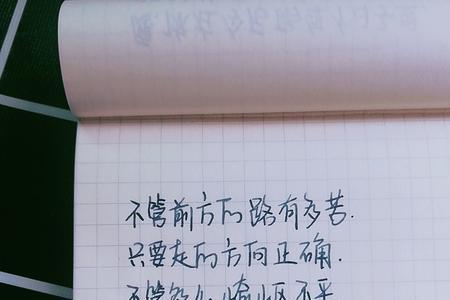 不管前方的路有多苦.
只要走的方向正确.
不管多么崎岖不平